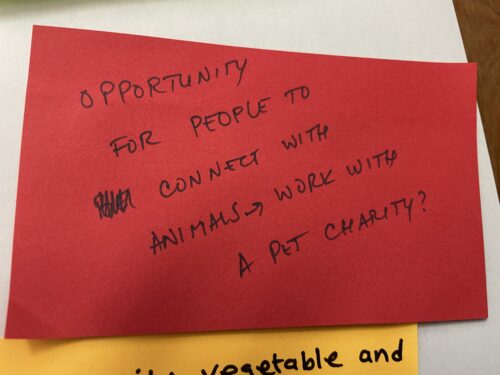 OPPORTUNITY
FOR PEOPLE TO
CONNECT WITH
ANIMALS → WORK WITH
A PET CHARITY?
vegetable and